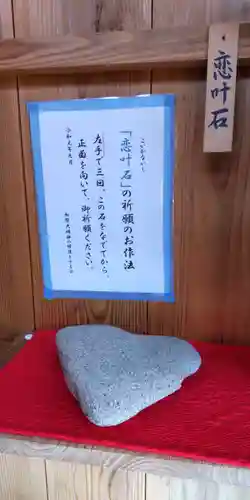 こいかない し
「恋叶石」の祈願のお作法
左手で三回、この石をなでてから、
正面を向いて、御祈願ください。
恋叶石